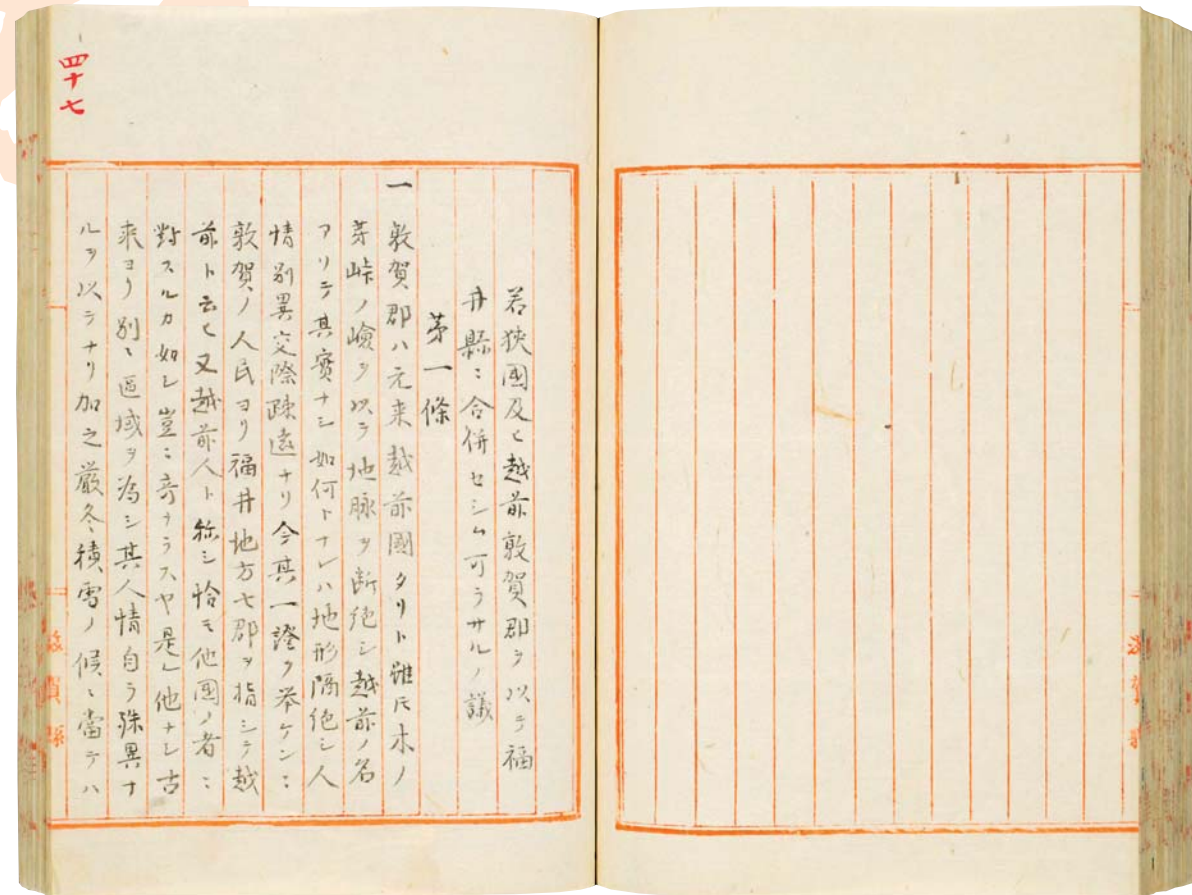 若狹國及ヒ越前敦賀郡ヲ以テ福
井縣ニ合併セシム可ラサルノ議
第一條
一敦賀郡ハ元来越前國タリト雖𪜈木ノ
芽峠ノ嶮ヲ以テ地脉ヲ断絶シ越前ノ名
アリテ其實ナシ如何トナレハ地形隔絶シ人
情別異交際疎遠ナリ今其一證ヲ举ケンニ
敦賀ノ人民ヨリ福井地方七郡ヲ指シテ越
前ト云ヒ又越前人ト称シ恰モ他國ノ者ニ
對スルカ如シ豈ニ奇ナラスヤ是レ他ナシ古
来ヨリ別ニ區域ヲ為シ其人情自ラ殊異ナ
ルヲ以テナリ加之厳冬積雪ノ候ニ當テハ
四十七
敦賀縣